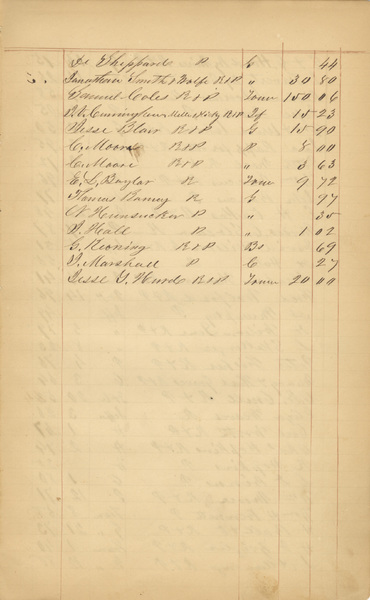 Sheppard P C 44
Jonathan Smith & Wolfe R & P " 30 80
Samuel Coles R & P Town 150 06
Cunningham Miller & Kirby R & P 15 23
Jesse Blair R & P G 15 90
C. Moore P P 8 00
C. Moore R & P " 3 63
E. L. Baylor R Town 9 72
Thomas Barney R G 97
N Hunsucker P " 35
Hall P " 1 02
G. Kioning R & P 69
Marshall P C 27
Jesse Hurd R & P Town 20 00